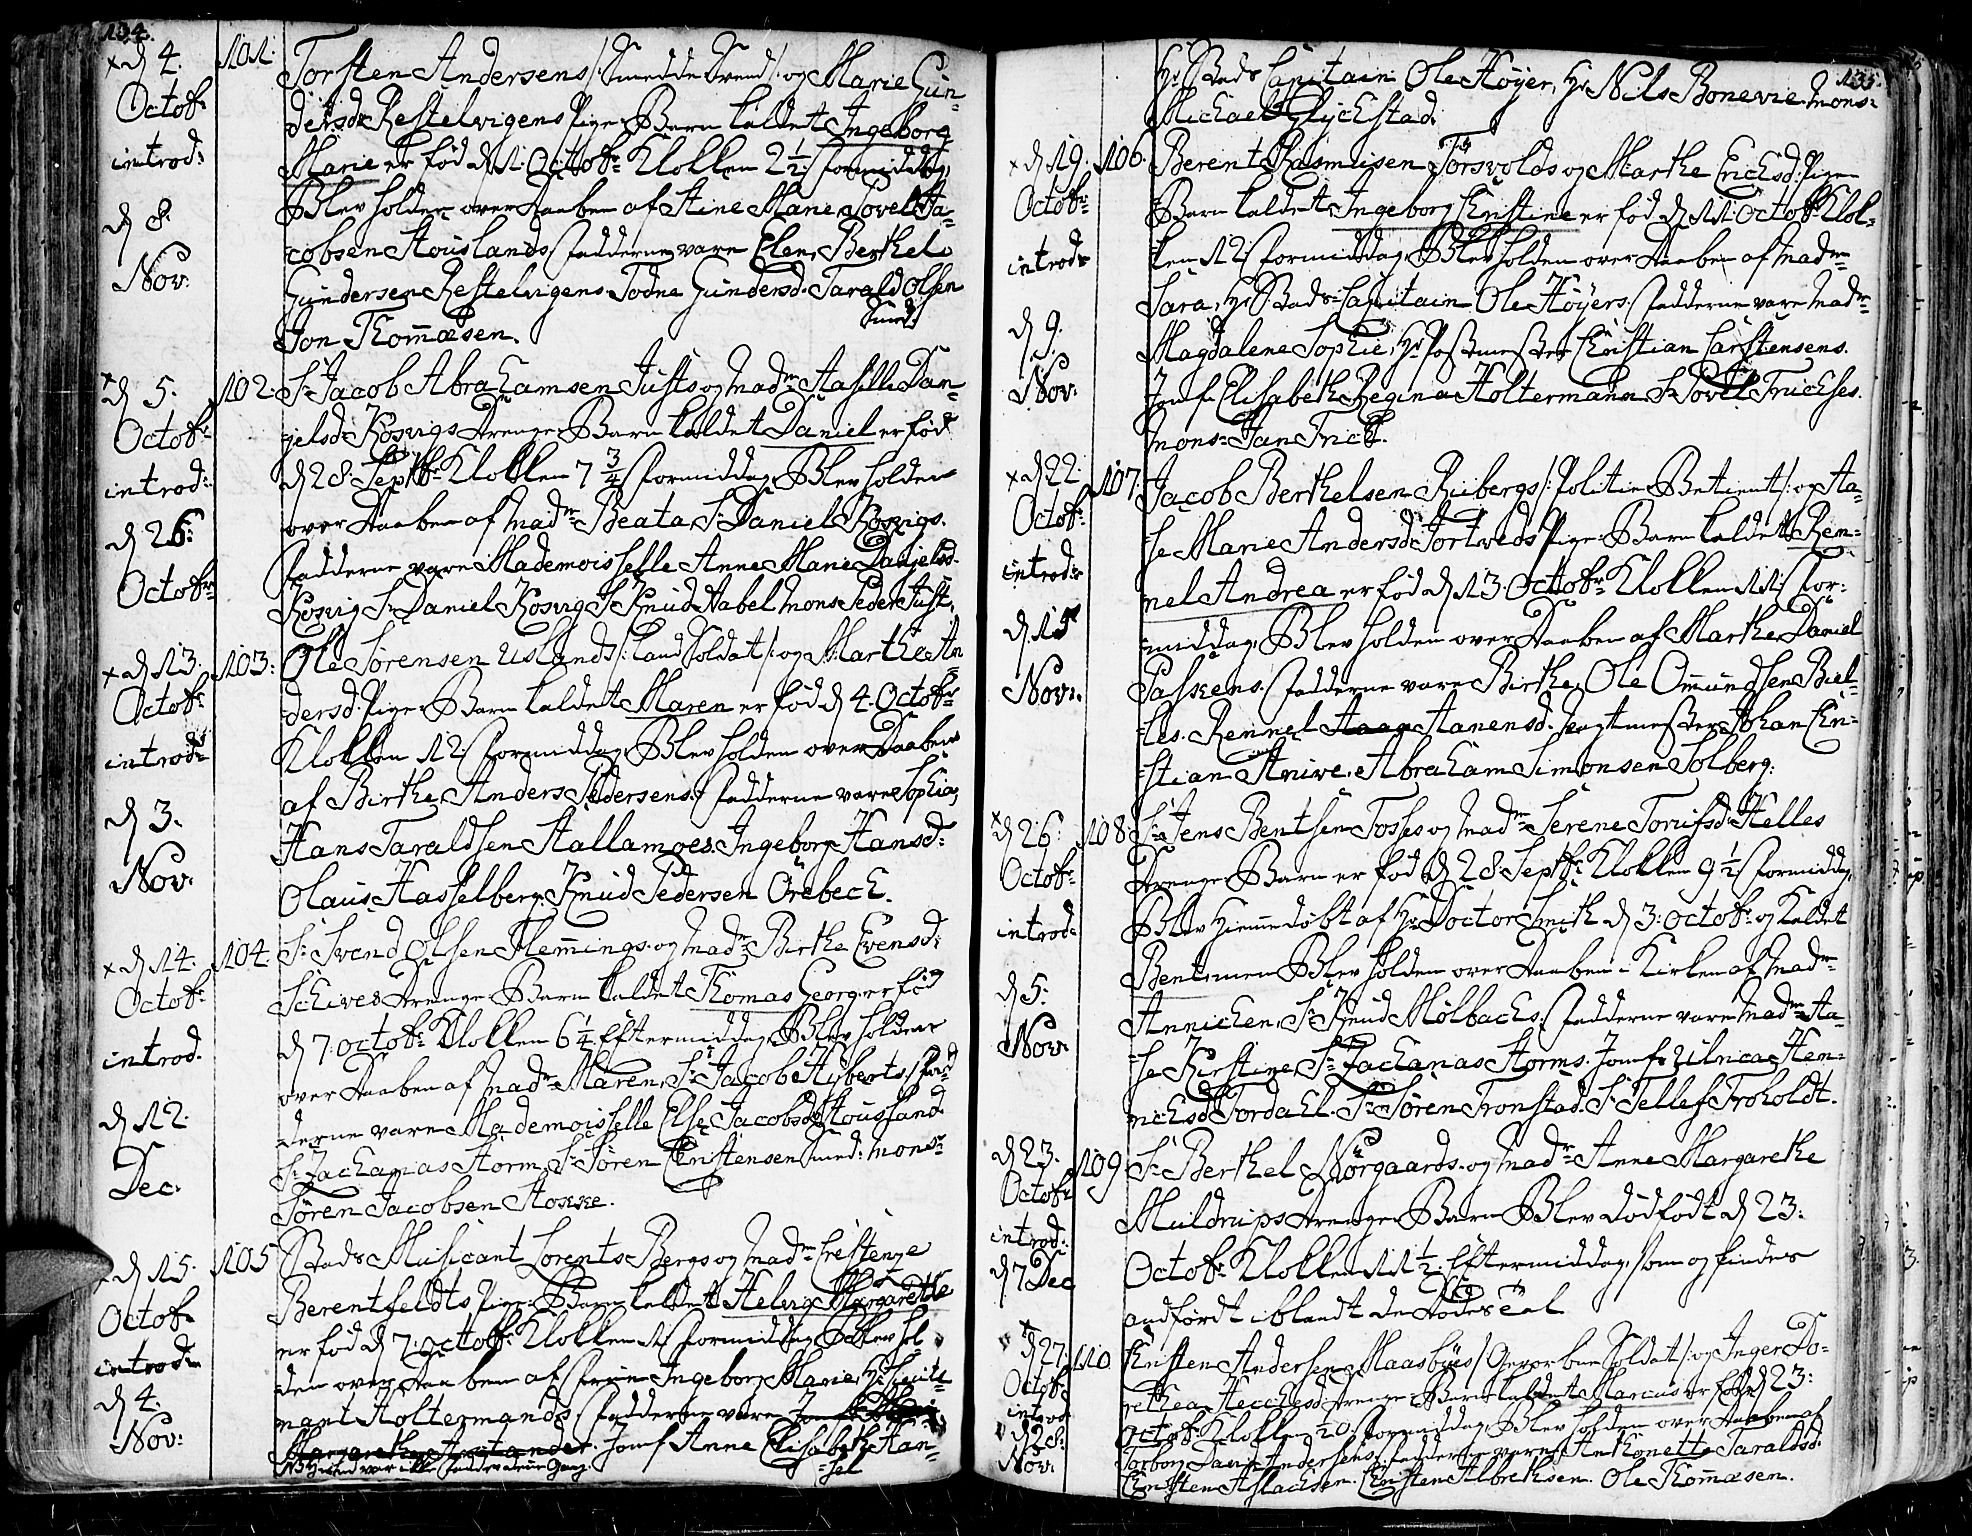 134.
x d 4. Octobr introd: d 8. Nov:
101. Torsten Andersens /: Smedde Svend :/ og Marie Gun-
dersdr Restelvigens Pige-Barn kaldet Ingeborg
Marie er fød d 1. Octobr Klokken 2½ formiddag,
Blev holden over Daaben af Stine Marie Povel Ja-
cobsen Stouslands, fadderne vare Elen, Berthel
Gundersen Restelvigens. Todne Gundersd. Tarald Olsen
Smed:
Jon Thommæsen.
x d 5. Octobr introd: d 26: Octobr
102. Sr Jacob Abrahamsen Justs og Madme Aasille Dan-
jelsdr Kosvigs Drenge-Barn kaldet Daniel er fød
d 28 Septbr Klokken 7¾ formiddag, Blev holden
over Daaben af Madme Beata, Sr Daniel Kosvigs.
Fadderne vare Mademoisselle Anne Marie Danjelsd.
Kosvig Sr Daniel Kosvig Sr Knud Nabel Mons. Peder Just.
x d 13. Octobr introd: d 3. Nov.
103: Ole Sørensen Uslands /: Land Soldat :/ og Marthe An-
dersd. Pige-Barn kaldet Maren er fød d 4. Octobr
Klokken 12. formiddag, Blev holden over Daaben
af Birthe, Anders Pedersens. fadderne vare Sophia,
Hans Taraldsen Stallamoes. Ingeborg Hansd:
Olaus Hasselberg, Knud Pedersen Örebeck.
x d 14. Octobr introd. d 12. Dec.
104. Sr Svend Olsen Flemmings. og Madme Birthe Evensd:
Schives Drenge-Barn kaldet Thomas Georg er fød
d 7. Octobr Klokken 6¼. Eftermiddag, Blev holden
over Daaben af Madme Maren, Sr Jacob Hyberts, fad
derne vare Mademoisselle Else Jacobsdr Stousland.
Sr Zacharias Storm, Sr Søren Christensen Smed: Mons:
Søren Jacobsen Stokke.
x d 15. Octobr introd. d 4. Nov:
105 Stads Musicant Lorents Bergs og Madme Crestenze
Berentfeldts Pige-Barn kaldet Helvig Margarethe
er fød d 7. Octobr Klokken 1. formiddag Blev hol
den over Daaben af Ingeborg Marie, Hr Leute-
nant Holtermands, fadderne vare
Margarethe Jomf Anne Elisabeth Han-
sel
135.
Hr Stads Capitain Ole Høyer, Hr Nils Bonevie Mons:
Michael Glychstad.
x d 19. Octobr introd: d 9. Nov:
106. Berent Rasmusen Törsvolds og Marthe Erichsd. Pige-
Barn kaldet Ingeborg Christine er fød d 11: Octobr Klok-
ken 12. formiddag, Blev holden over Daaben af Madme
Sara, Hr Stads-Capitain Ole Høyers. Fadderne vare Madme
Magdalene Sophie, Hr Postmester Christian Carstensens.
Jomf. Elisabeth Regina Holtermann Sr Povel Trichses.
Mons: Jan Trich.
x d 22. Octobr introdr d 15 Nov:
107. Jacob Berthelsen Rübergs /: Politie Betient :/ og Aa-
se Marie Andersdr Tortveds Pige-Barn kaldet Rem-
nel Andrea er fød d 13. Octobr Klokken 11: for:
middag, Blev holden over Daaben af Marthe Daniel
Paskens. Fadderne vare Birthe, Ole Ommundsen Biel-
kes. Remnel Hanensd. Johan Chri-
stian Anive. Abraham Simonsen Solberg.
x d 26: Octobr introd: d 5. Nov:
108 Sr Jens Bentsen Fosses og Madme Serene Torrisdr Helles
Drenge-Barn er fød d 28 Septbr Klokken 9½ formiddag,
Blev Hiemme døbt af Hr Doctor Smith d 3: Octobr og kaldet
Bent, men Blev holden over Daaben i Kirken af Madme
Annichen, Sr Knud Mølbachs. Fadderne vare Madme Aa-
se Kirstine, Sr Zacharias Storms. Jomf: Ulrica Hen-
richsd Tordael. Sr Søren Tronstad. Sr Tellef Froholdt.
d 23. Octobr introd: d 7 Dec
109 Sr Berthel Nørgaards. og Madme Anne Margarethe
Muldrups Drenge-Barn Blev Dødfødt d 23:
Octobr Klokken 11½. Eftermiddag, som og findes
andførdt iblandt de Dødes Tal
x d 27. Octobr introd d 28: Nov.
110 Christen Andersen Maasbyes /: Gevorben Soldat :/ og Inger Do-
rethea Drenge-Barn kaldet Marcus er fød d 23:
Octobr Klokken 10. formiddag, Blev holden over Daaben af
Torborg, Andersens. Fadderne vare Anthonette Taraldsd.
Christen Aslachsen. Christen Albrethsen. Ole Thommæsen.